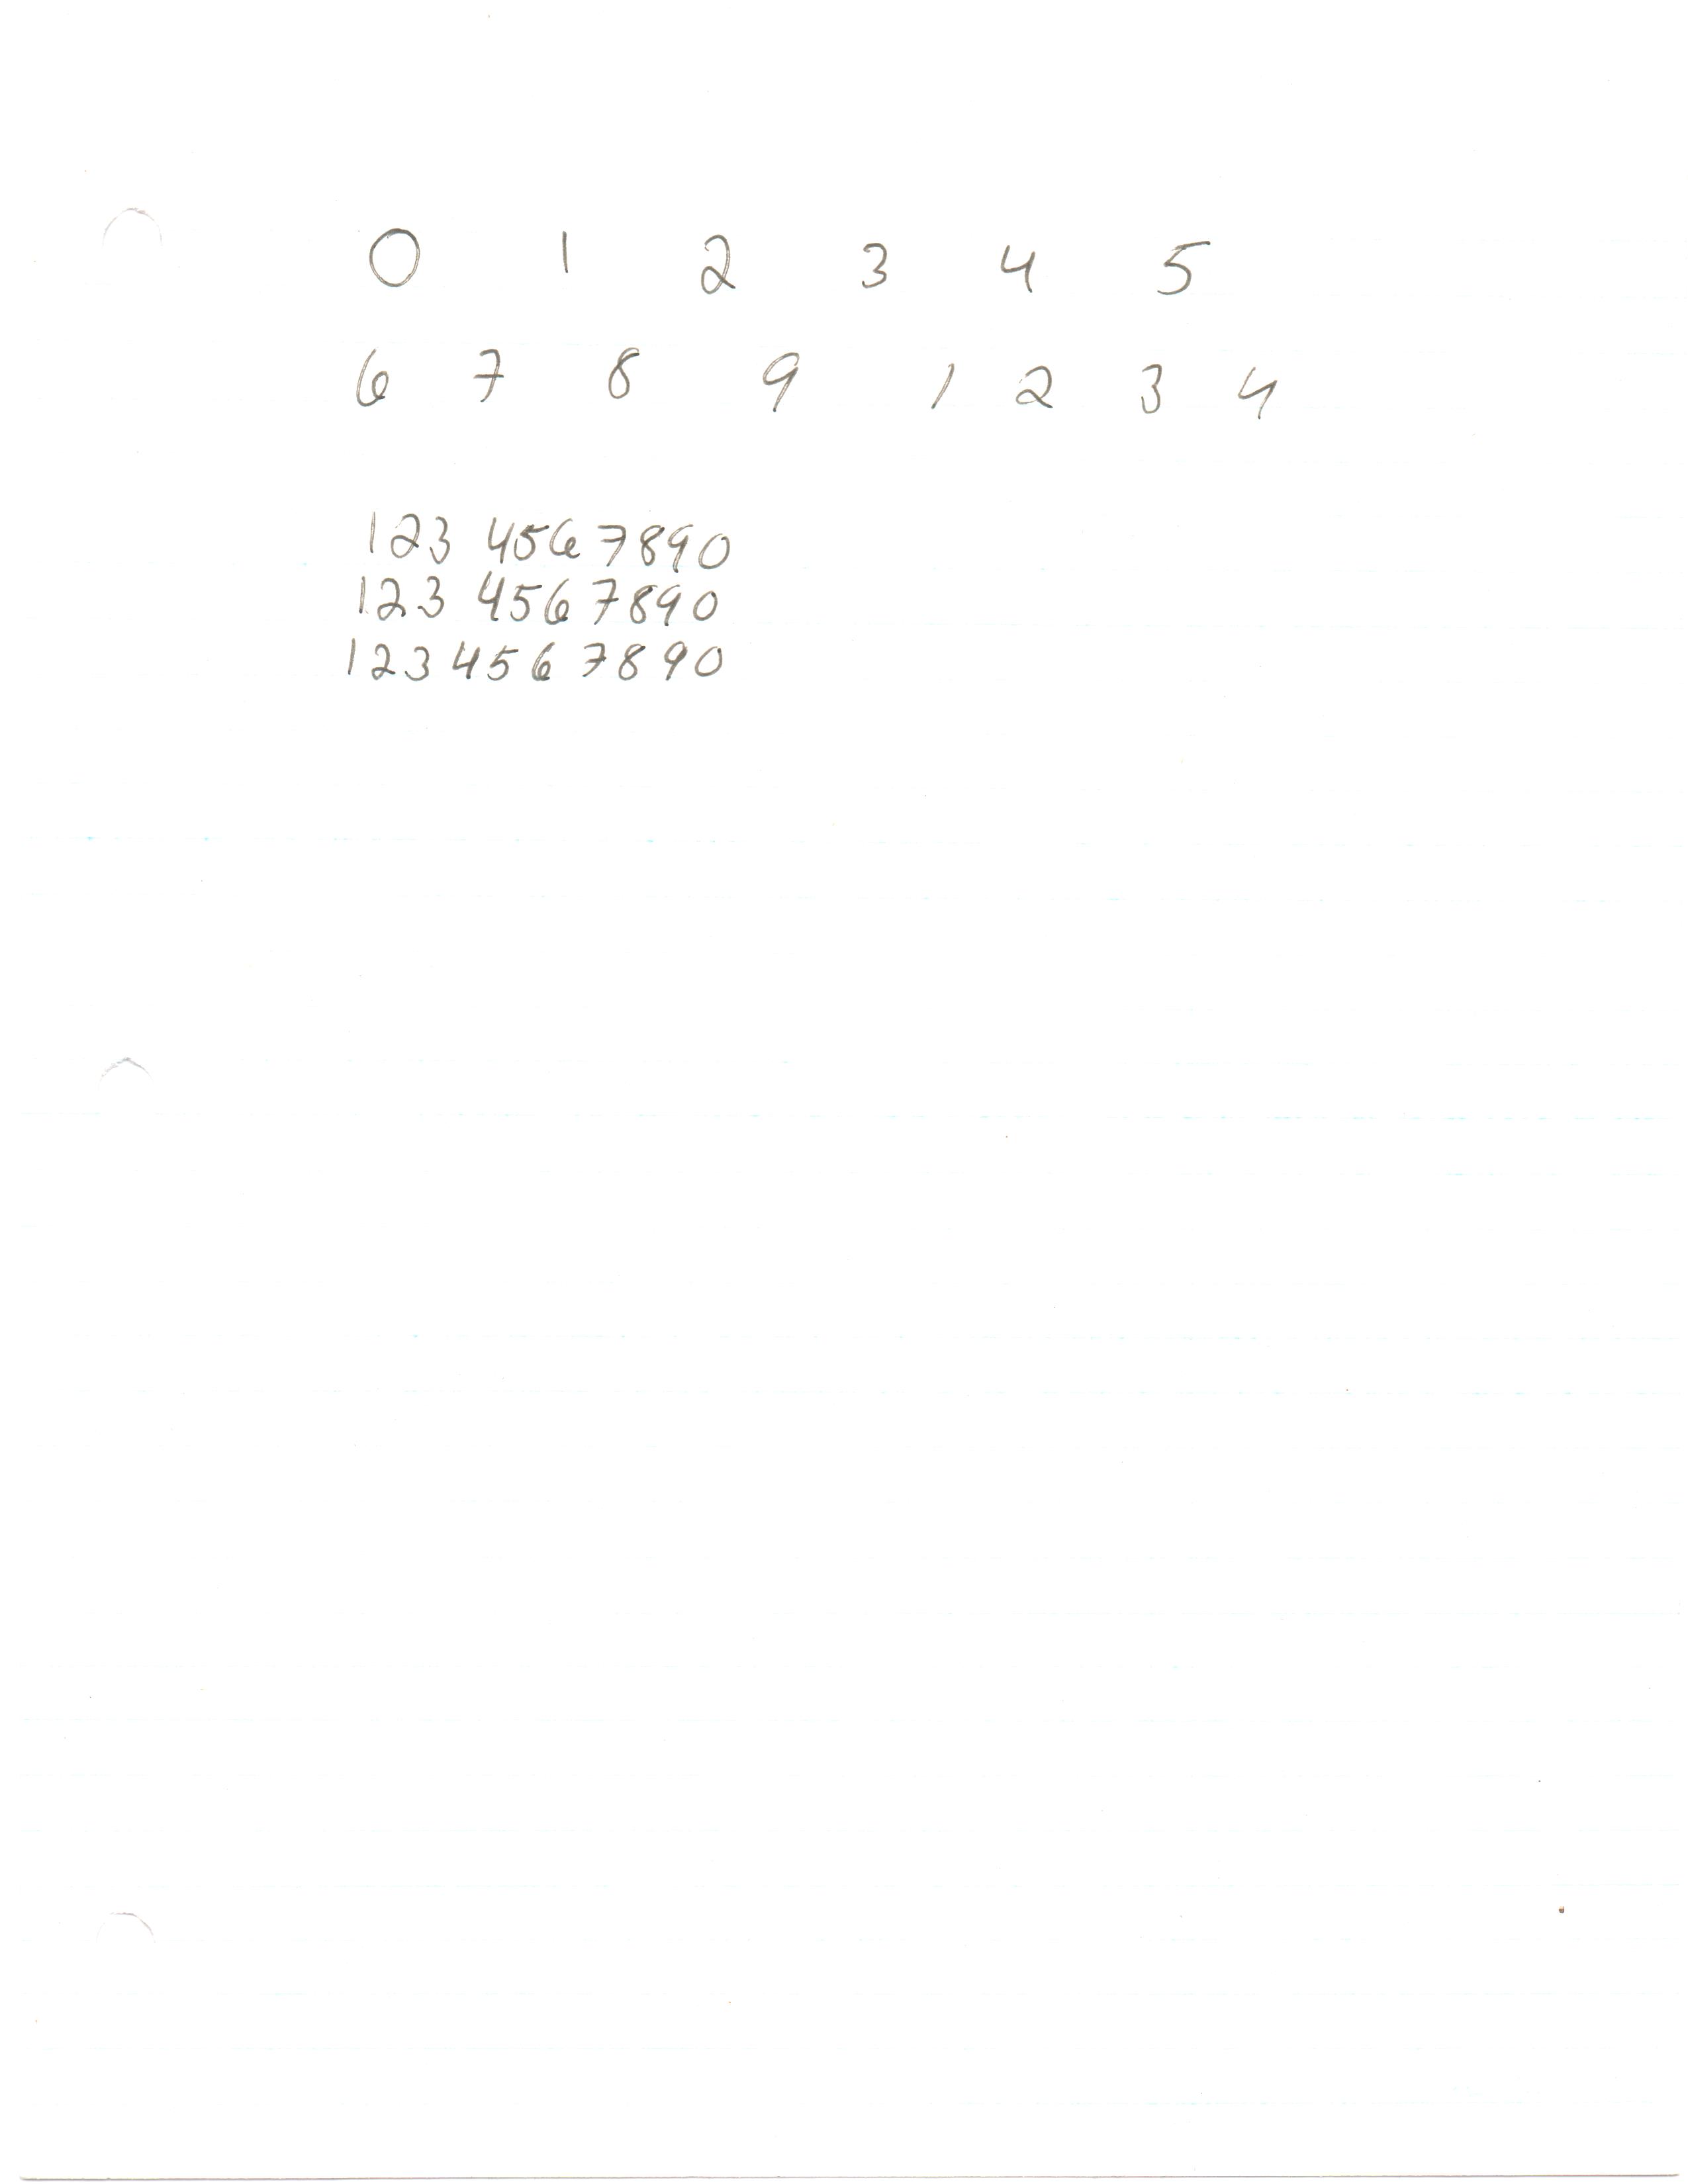 0 1 2 3 4 5
6 7 8 9 1 2 3 4
123 4567890
123 4567890
1234567890